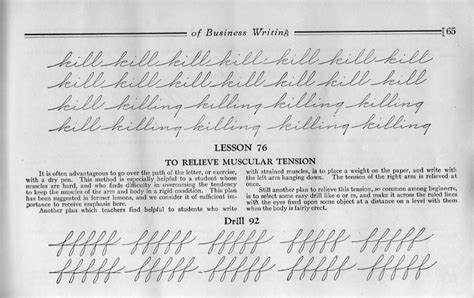 of Business Writing 65
kill kill kill kill kill kill kill kill
kill kill kill kill kill kill kill kill
killing killing killing killing killing
kill killing killing killing killing
LESSON 76
TO RELIEVE MUSCULAR TENSION
It is often advantageous to go over the path of the letter, or exercise,
with a dry pen. This method is especially helpful to a student whose
muscles are hard, and who finds difficulty in overcoming the tendency
to keep the muscles of the arm and body in a rigid condition. This plan
has been suggested in former lessons, and we consider it of sufficient im-
portance to receive emphasis here.
Another plan which teachers find helpful to students who write
with strained muscles, is to place a weight on the paper, and write with
the left arm hanging down. The tension of the right arm is relieved at
once.
Still another plan to relieve this tension, so common among beginners,
is to select some easy drill like o or m, and make it across the ruled lines
with the eyes fixed upon some object at a distance on a level with them
when the body is fairly erect.
Drill 92
fffff fffff fffff fffff fffff
fffff fffff fffff fffff fffff